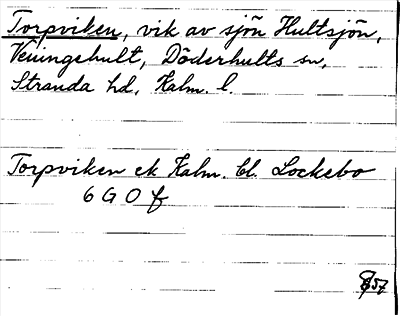 Torpviken, vik av sjön Hultsjön,
Veningehult, Döderhults sn,
Stranda hd, Kalm. l.
Torpviken ek Kalm. bl. Lockebo
6 G 0 f
57